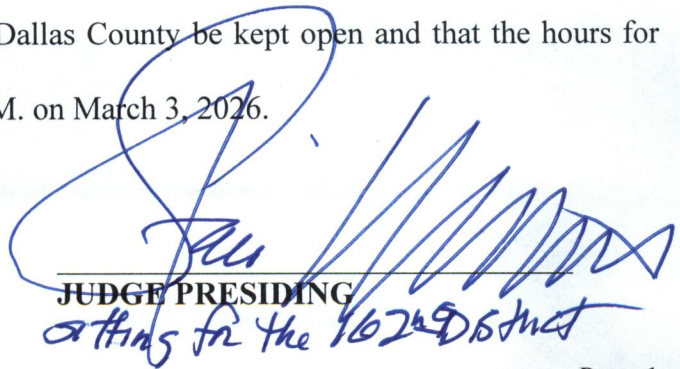 Dallas County be kept open and that the hours for
M. on March 3, 2026.
JUDGE PRESIDING
sitting for the 162nd District